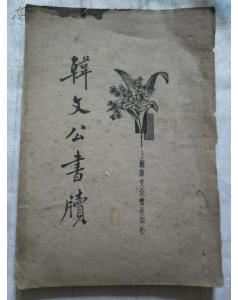 韓文公書牘
上海新文化書社印行